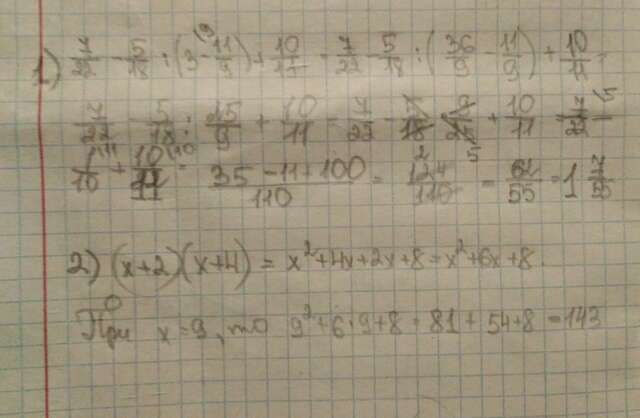 1) 7/22 - 5/18 : (3 - 11/9) + 10/11 = 7/22 - 5/18 : (36/9 - 11/9) + 10/11 =
7/22 - 5/18 : 25/9 + 10/11 = 7/22 - 5/18 · 9/25 + 10/11 = 7/22 -
1/10 + 10/11 = (35 - 11 + 100)/110 = 124/110 = 62/55 = 1 7/55
2) (x+2)(x+4) = x²+4x+2x+8 = x²+6x+8.
При x=9, то 9²+6·9+8 = 81+54+8 = 143